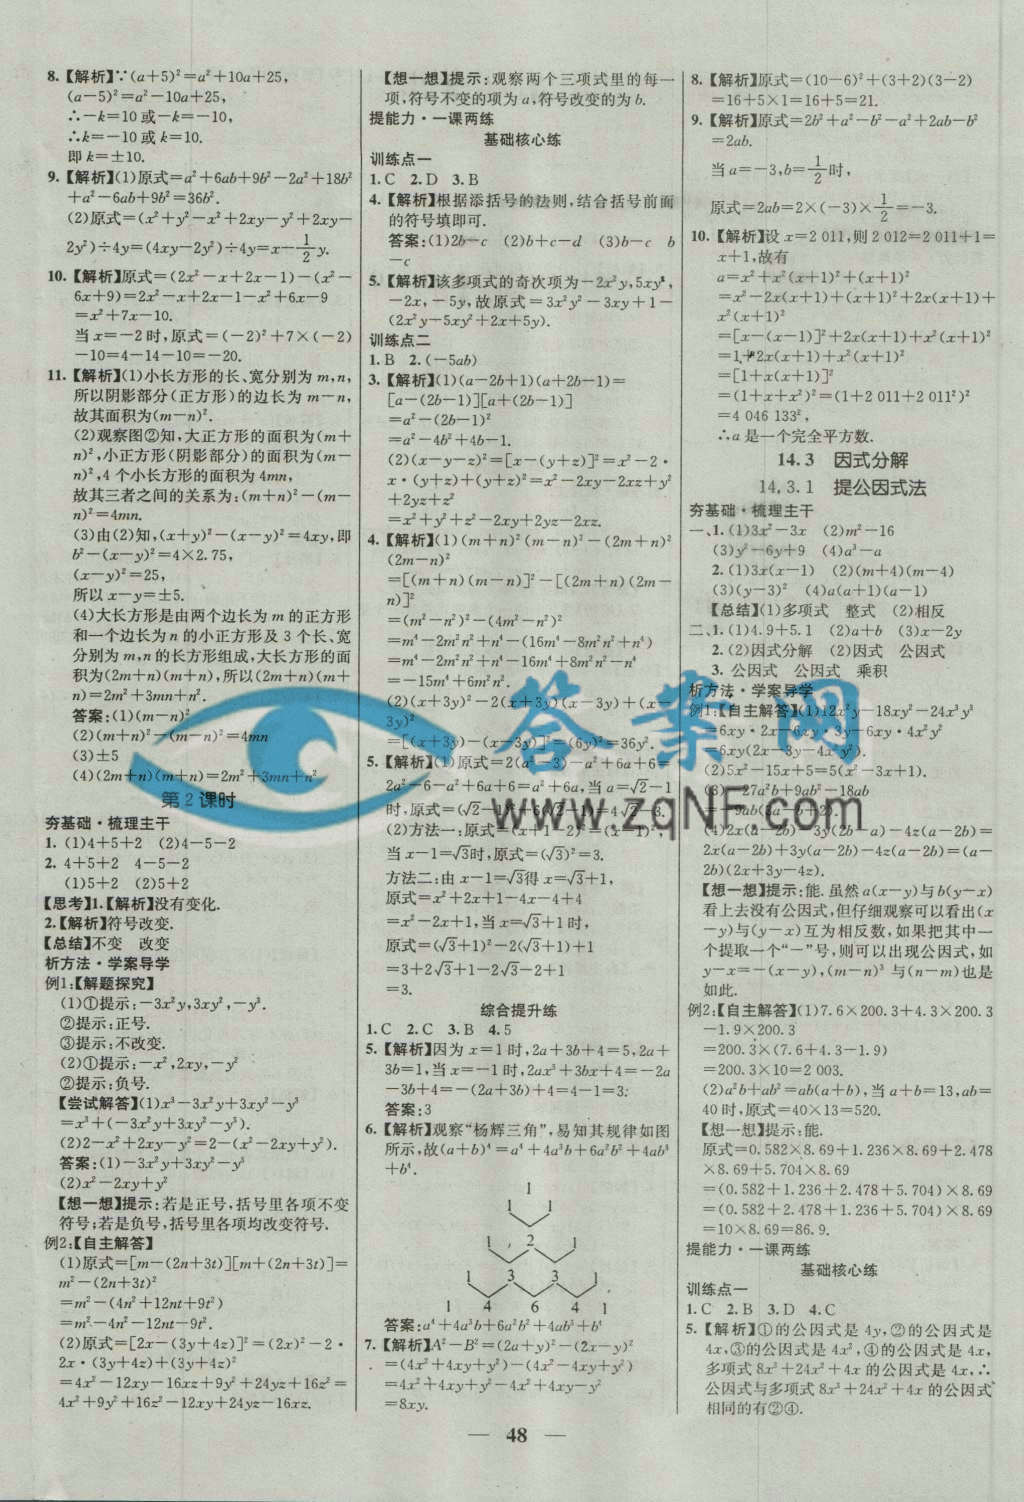 8.【解析】∵(a+5)²=a²+10a+25,
(a-5)²=a²-10a+25,
∴-k=10或-k=-10,
∴k=-10或k=10.
即k=±10.
9.【解析】(1)原式=a²+6ab+9b²-2a²+18b²
+a²-6ab+9b²=36b².
(2)原式=(x²+y²-x²+2xy-y²+2xy-
2y²)÷4y=(4xy-2y²)÷4y=x-1/2y.
10.【解析】原式=(2x²-x+2x-1)-(x²-
6x+9)=2x²-x+2x-1-x²+6x-9
=x²+7x-10.
当x=-2时,原式=(-2)²+7×(-2)
-10=4-14-10=-20.
11.【解析】(1)小长方形的长、宽分别为m,n,
所以阴影部分(正方形)的边长为m-n,
故其面积为(m-n)².
(2)观察图②知,大正方形的面积为(m+
n)²,小正方形(阴影部分)的面积为(m-
n)²,4个小长方形的面积为4mn,
故其三者之间的关系为:(m+n)²-(m-
n)²=4mn.
(3)由(2)知,(x+y)²-(x-y)²=4xy,即
b²-(x-y)²=4×2.75,
(x-y)²=25,
所以x-y=±5.
(4)大长方形是由两个边长为m的正方形
和一个边长为n的小正方形及3个长、宽
分别为m,n的长方形组成,大长方形的面
积为(2m+n)(m+n),所以(2m+n)(m+
n)=2m²+3mn+n².
答案:(1)(m-n)²
(2)(m+n)²-(m-n)²=4mn
(3)±5
(4)(2m+n)(m+n)=2m²+3mn+n²
第2课时
夯基础·梳理主干
1. (1)4+5+2 (2)4-5-2
2. 4+5+2 4-5-2
(1)5+2 (2)5+2
【思考】1.【解析】没有变化.
2.【解析】符号改变.
【总结】不变 改变
析方法·学案导学
例1:【解题探究】
(1)①提示:-3x²y,3xy²,-y³.
②提示:正号.
③提示:不改变.
(2)①提示:-x²,2xy,-y²
②提示:负号.
【尝试解答】(1)x³-3x²y+3xy²-y³
=x³+(-3x²y+3xy²-y³).
(2)2-x²+2xy-y²=2-(x²-2xy+y²).
答案:(1)-3x²y+3xy²-y³
(2)x²-2xy+y²
【想一想】提示:若是正号,括号里各项不变
符号;若是负号,括号里各项均改变符号.
例2:【自主解答】
(1)原式=[m-(2n+3t)][m+(2n+3t)]=
m²-(2n+3t)²
=m²-(4n²+12nt+9t²)
=m²-4n²-12nt-9t².
(2)原式=[2x-(3y+4z)]²=(2x)²-2·
2x·(3y+4z)+(3y+4z)²
=4x²-12xy-16xz+9y²+24yz+16z²=
4x²+9y²+16z²-12xy+24yz-16xz.
【想一想】提示:观察两个三项式里的每一
项,符号不变的项为a,符号改变的为b.
提能力·一课两练
基础核心练
训练点一
1. C 2. D 3. B
4.【解析】根据添括号的法则,结合括号前面
的符号填即可.
答案:(1)2b-c (2)b+c-d (3)b-c b
-c
5.【解析】该多项式的奇次项为-2x²y,5xy²,
-2x,-5y,故原式=3x²y²-3xy+1-
(2x²y-5xy²+2x+5y).
训练点二
1. B 2. (-5ab)
3.【解析】(1)(a-2b+1)(a+2b-1)=
[a-(2b-1)][a+(2b-1)]
=a²-(2b-1)²
=a²-4b²+4b-1.
(2)(x-y-z)²=[x-(y+z)]²=x²-2·
x·(y+z)+(y+z)²=x²-2xy-2xz+y²
+2yz+z²
=x²+y²+z²-2xy+2yz-2xz.
4.【解析】(1)(m+n)²(m-n)²-(2m+n)²
(2m-n)²
=[(m+n)(m-n)]²-[(2m+n)(2m-
n)]²
=(m²-n²)²-(4m²-n²)²
=m⁴-2m²n²+n⁴-(16m⁴-8m²n²+n⁴)
=m⁴-2m²n²+n⁴-16m⁴+8m²n²-n⁴
=-15m⁴+6m²n².
(2)(x+3y)²-2(x+3y)(x-3y)+(x-
3y)²
=[(x+3y)-(x-3y)]²=(6y)²=36y².
5.【解析】(1)原式=2(a²-3)-a²+6a+6=
2a²-6-a²+6a+6=a²+6a,当a=√2-1
时,原式=(√2-1)²+6(√2-1)=4√2-3.
(2)方法一:原式=(x+1-2)²=(x-1)²,
当x-1=√3时,原式=(√3)²=3.
方法二:由x-1=√3得x=√3+1,
原式=x²+2x+1-4x-4+4
=x²-2x+1,当x=√3+1时,
原式=(√3+1)²-2(√3+1)+1
=3+2√3+1-2√3-2+1
=3.
综合提升练
1. C 2. C 3. B 4. 5
5.【解析】因为x=1时,2a+3b+4=5,2a+
3b=1,当x=-1时,2ax³+3bx+4=-2a
-3b+4=-(2a+3b)+4=-1+4=3.
答案:3
6.【解析】观察“杨辉三角”,易知其规律如图
所示,故(a+b)⁴=a⁴+4a³b+6a²b²+4ab³
+b⁴.
1
1 1
1 2 1
1 3 3 1
1 4 6 4 1
答案:a⁴+4a³b+6a²b²+4ab³+b⁴
7.【解析】A²-B²=(2x+y)²-(2x-y)²
=(4x²+4xy+y²)-(4x²-4xy+y²)
=4x²+4xy+y²-4x²+4xy-y²
=8xy.
8.【解析】原式=(10-6)²+(3+2)(3-2)
=16+5×1=16+5=21.
9.【解析】原式=2b²+a²-b²-a²+2ab-b²
=2ab.
当a=-3,b=1/2时,
原式=2ab=2×(-3)×1/2=-3.
10.【解析】设x=2 011,则2 012=2 011+1=
x+1,故有
a=x²+x²(x+1)²+(x+1)²
=x²-2x(x+1)+(x+1)²+2x(x+1)+
x²(x+1)²
=[x-(x+1)]²+2x(x+1)+x²(x+1)²
=1+2x(x+1)+x²(x+1)²
=[1+x(x+1)]²
=(1+x+x²)²=(1+2 011+2 011²)²
=4 046 133²,
∴a是一个完全平方数.
14.3 因式分解
14.3.1 提公因式法
夯基础·梳理主干
一、1. (1)3x²-3x (2)m²-16
(3)y²-6y+9 (4)a³-a
2. (1)3x(x-1) (2)(m+4)(m-4)
(3)(y-3)² (4)a(a+1)(a-1)
【总结】(1)多项式 整式 (2)相反
二、1. (1)4.9+5.1 (2)a+b (3)x-2y
2. (2)因式分解 (2)因式 公因式
3. 公因式 公因式 乘积
析方法·学案导学
例1:【自主解答】(1)12x²y-18xy²-24x³y³
=6xy·2x-6xy·3y-6xy·4x²y²
=6xy(2x-3y-4x²y²).
(2)5x²-15x+5=5(x²-3x+1).
(3)-27a²b+9ab²-18ab
=-9ab(3a-b+2).
(4)2x(a-2b)-3y(2b-a)-4z(a-2b)=
2x(a-2b)+3y(a-2b)-4z(a-2b)=(a-
2b)(2x+3y-4z).
【想一想】提示:能.虽然a(x-y)与b(y-x)
看上去没有公因式,但仔细观察可以看出(x
-y)与(y-x)互为相反数,如果把其中一
个提取一个“-”号,则可以出现公因式,如
y-x=-(x-y),(m-n)³与(n-m)也是
如此.
例2:【自主解答】(1)7.6×200.3+4.3×200.3
-1.9×200.3
=200.3×(7.6+4.3-1.9)
=200.3×10=2 003.
(2)a²b+ab²=ab(a+b),当a+b=13,ab=
40时,原式=40×13=520.
【想一想】提示:能.
原式=0.582×8.69+1.236×8.69+2.478
×8.69+5.704×8.69
=(0.582+1.236+2.478+5.704)×8.69
=(0.582+2.478+1.236+5.704)×8.69
=10×8.69=86.9.
提能力·一课两练
基础核心练
训练点一
1. C 2. B 3. D 4. C
5.【解析】①的公因式是4y,②的公因式是
4x,③的公因式是4x²,④的公因式是4x,
多项式8x³+24x²+4x的公因式是4x,∴
公因式与多项式8x³+24x²+4x的公因式
相同的有②④.
— 48 —
答案网
www.zqNF.com